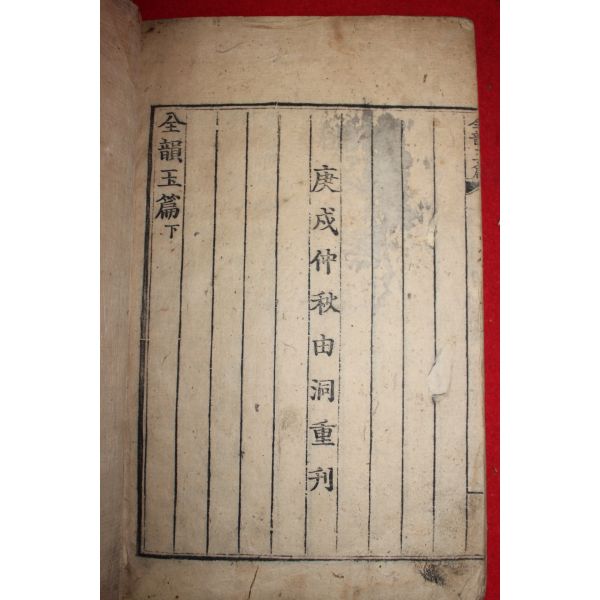 全韻玉篇
庚戌仲秋由洞重刊
全韻玉篇下